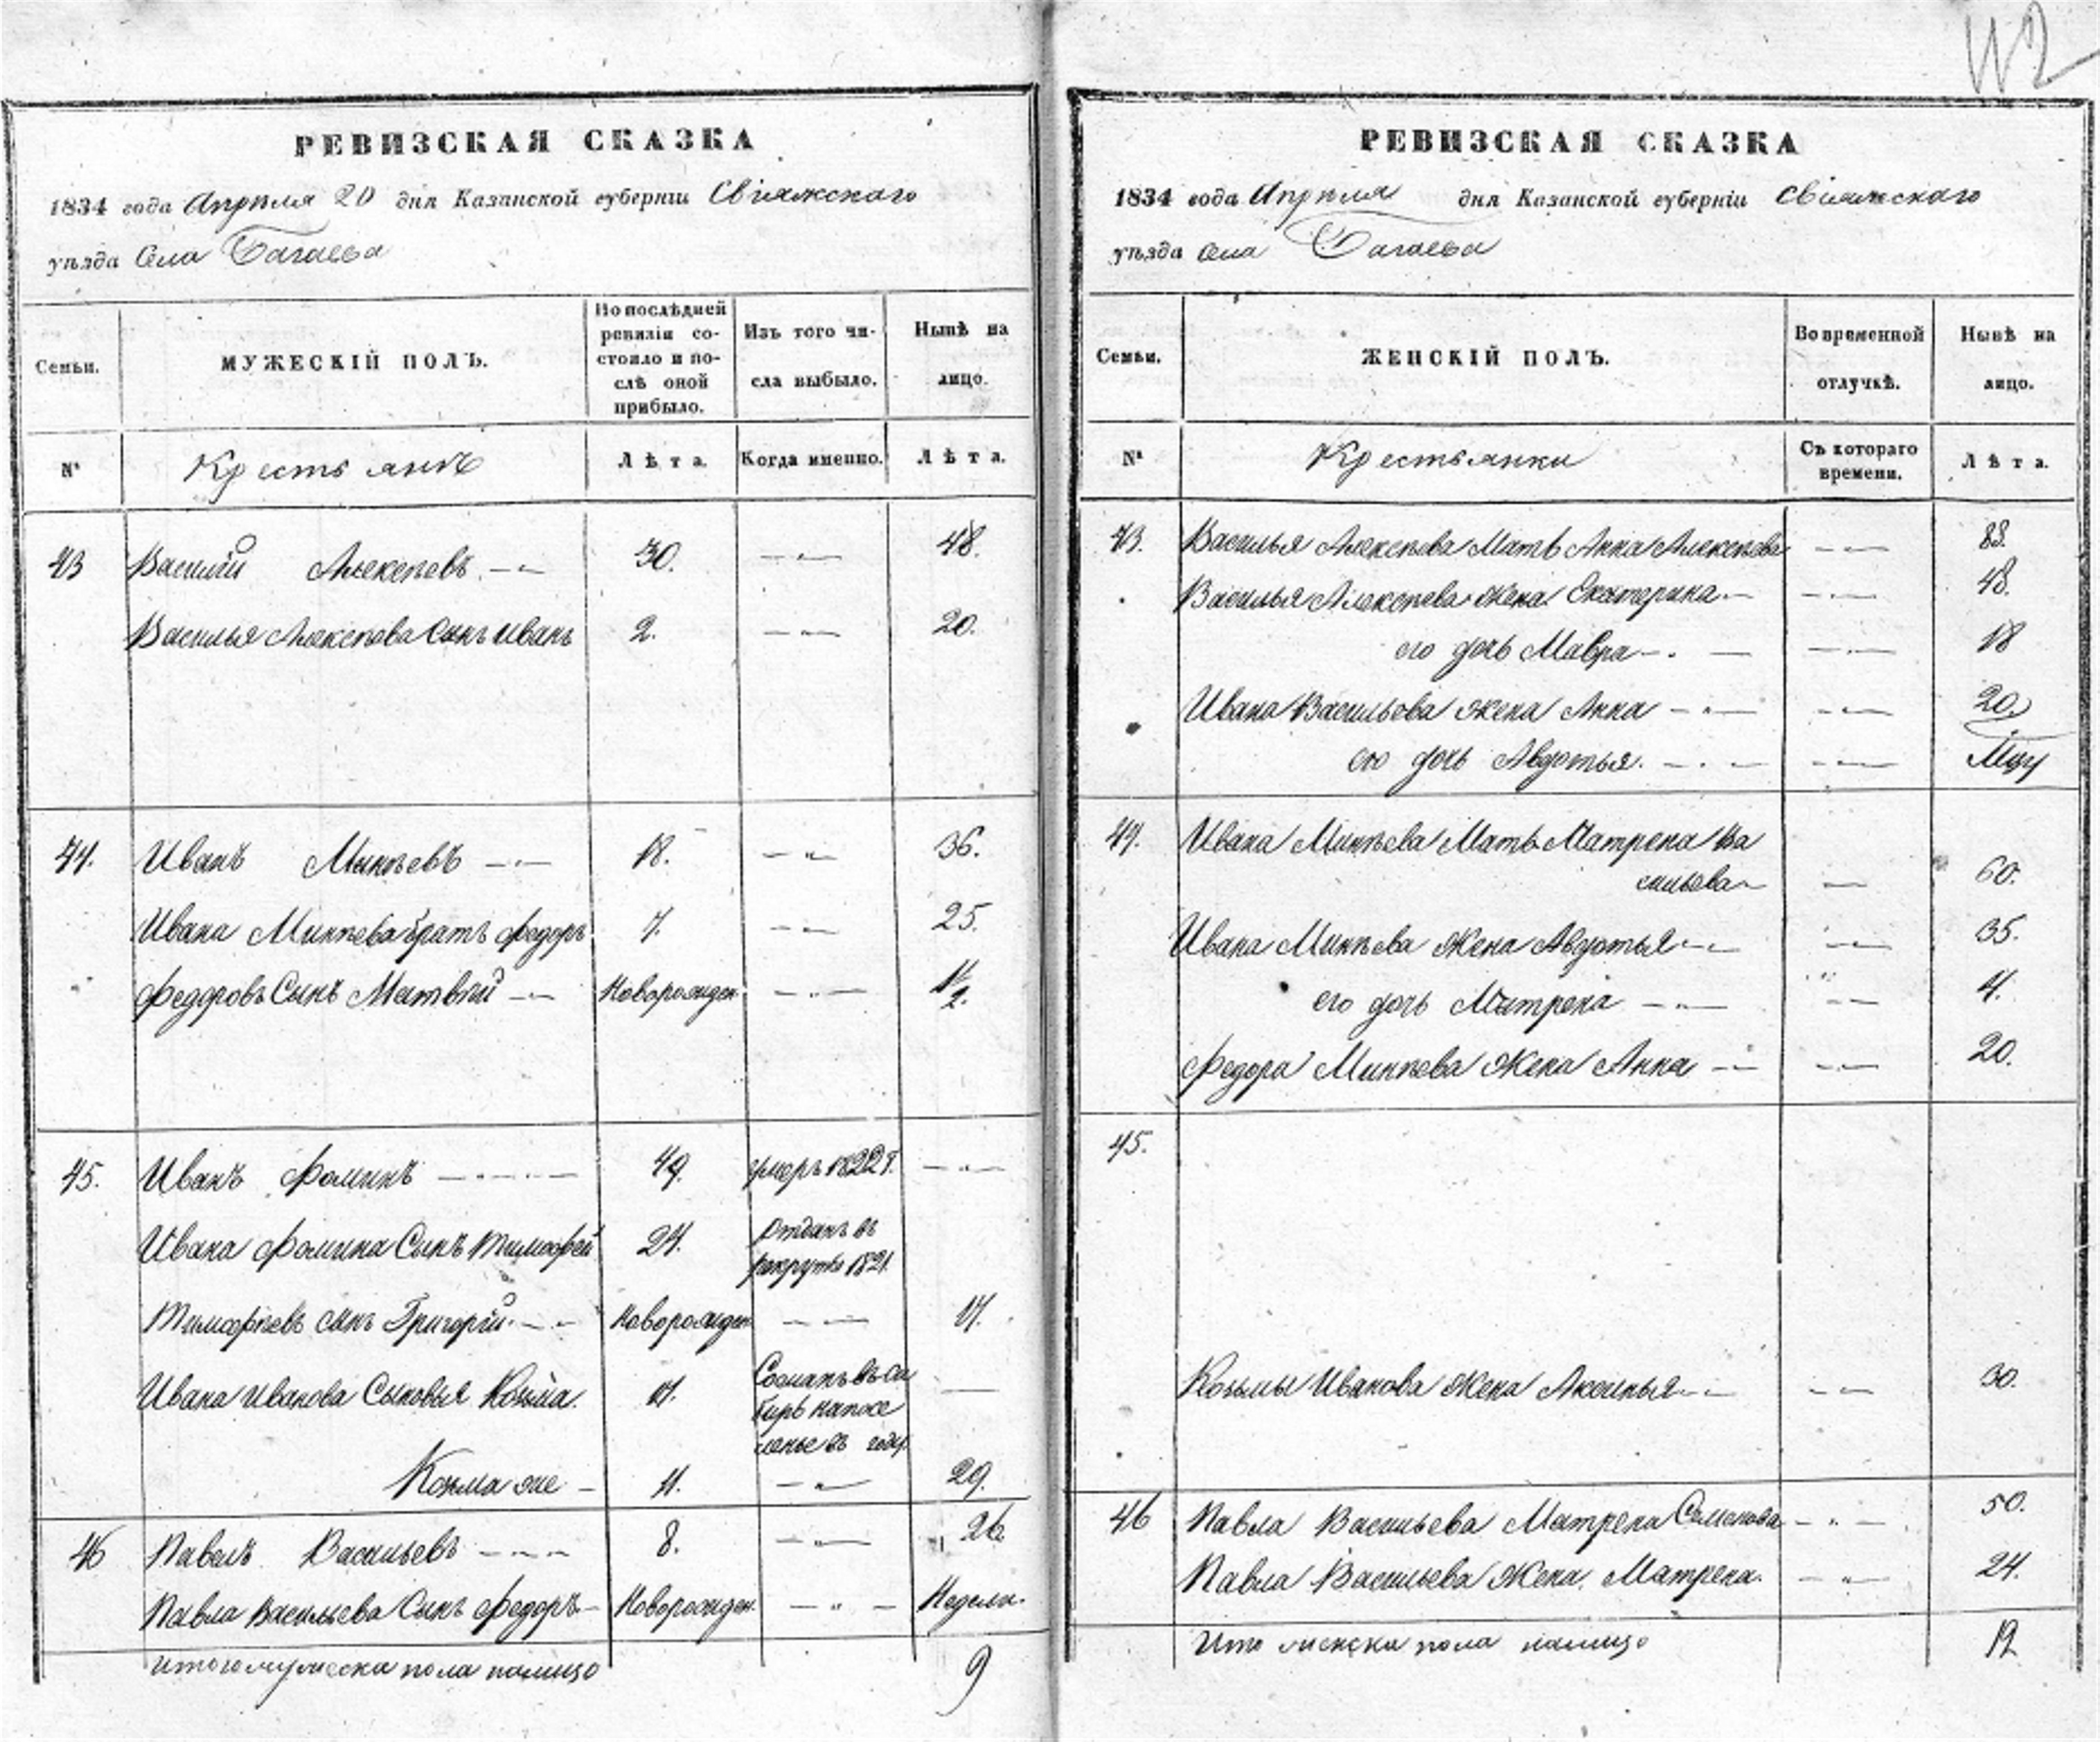 112
РЕВИЗСКАЯ СКАЗКА
1834 года Апреля 20 дня Казанской губерніи Свіяжскаго
уѣзда Села Багаева
Семьи.
МУЖЕСКІЙ ПОЛЪ.
По послѣдней ревизіи состояло и послѣ оной прибыло.
Изъ того числа выбыло.
Нынѣ на лицо.
№
Крестьянъ
Лѣта.
Когда именно.
Лѣта.
43 Василій Алексѣевъ 30. 48.
Василья Алексѣева Сынъ Иванъ 2. 20.
44. Иванъ Минѣевъ 18. 36.
Ивана Минѣева братъ Федоръ 7. 25.
Федоровъ Сынъ Матвѣй Новорожден 1/2.
45. Иванъ Фоминъ 49. умеръ 1822 г.
Ивана Фомина Сынъ Тимофей 24. Отданъ въ
рекруты 1821.
Тимофѣевъ сынъ Григорій Новорожден 17.
Ивана Иванова Сыновья Козма. 14. Сосланъ въ Си
бирь на посе
ленье въ году
Козма же 11. 29.
46 Павелъ Васильевъ 8. 26
Павла Васильева Сынъ Федоръ Новорожден. Недели.
Итого мужеска пола налицо 9
РЕВИЗСКАЯ СКАЗКА
1834 года Апреля дня Казанской губерніи Свіяжскаго
уѣзда Села Багаева
Семьи.
ЖЕНСКІЙ ПОЛЪ.
Во временной отлучкѣ.
Нынѣ на лицо.
№
Крестьянки
Съ котораго времени.
Лѣта.
43. Василья Алексѣева Мать Анна Алексѣева 88.
Василья Алексѣева жена Екатерина 48.
его дочь Мавра 18
Ивана Васильева жена Анна 20.
его дочь Авдотья.
44. Ивана Минѣева Мать Матрена Ва
сильева 60.
Ивана Минѣева Жена Авдотья 35.
его дочь Матрена 4.
Федора Минѣева Жена Анна 20.
45.
Козьмы Иванова Жена Аксинья 30.
46 Павла Васильева Матрена Семенова 50.
Павла Васильева Жена Матрена. 24.
Ито женска пола налицо 12